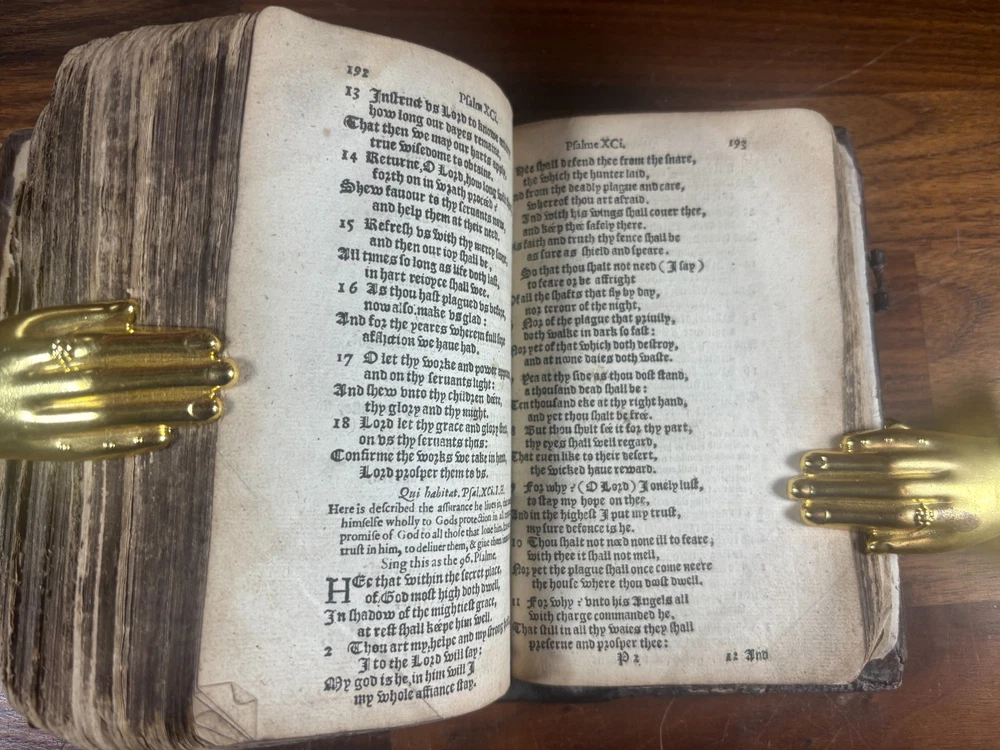 192
Psalm XCi.
13 Instruct vs Lord to know
how long our dayes remaine,
That then we may our harts apply,
true wisedome to obtaine.
14 Returne, O Lord, how long
forth on in wrath proceed?
Shew fauour to thy seruants now,
and help them at their need.
15 Refresh vs with thy mercy
and then our ioy shall be,
All tymes so long as life doth last,
in hart reioyce shall wee.
16 As thou hast plagued vs before,
now also make vs glad:
And for the yeares wherein full
affliction we haue had.
17 O let thy worke and power
and on thy seruants light:
And shew vnto thy children
thy glory and thy might.
18 Lord let thy grace and glory
on vs thy seruants thus:
Confirme the works we take in hand,
Lord prosper them to vs.
Qui habitat. Psal. XCi. I. H.
Here is described the assurance he liues in,
himselfe wholly to Gods protection in all
promise of God to all those that loue him,
trust in him, to deliuer them, & giue them
Sing this as the 96. Psalme.
HEe that within the secret place,
of God most high doth dwell,
In shadow of the mightiest grace,
at rest shall keepe him well.
2 Thou art my helpe and my strong
I to the Lord will say:
My god is he, in him will I
my whole affiance stay.
Psalme XCi.
193
Hee shall defend thee from the snare,
the which the hunter laid,
from the deadly plague and care,
whereof thou art afraid.
And with his wings shall couer thee,
and keep thee safely there.
faith and truth thy fence shall be
as sure as shield and speare.
So that thou shalt not need (I say)
to feare or be affright
Of all the shafts that fly by day,
nor terrour of the night,
Nor of the plague that priuily,
doth walke in dark so fast:
Nor yet of that which doth destroy,
and at noone daies doth waste.
Yea at thy side as thou dost stand,
a thousand dead shall be:
Ten thousand eke at thy right hand,
and yet thou shalt be free.
8 But thou shalt see it for thy part,
thy eyes shall well regard,
That euen like to their desert,
the wicked haue reward.
9 For why? (O Lord) I onely lust,
to stay my hope on thee,
And in the highest I put my trust,
my sure defence is he.
10 Thou shalt not need none ill to feare,
with thee it shall not mell,
Nor yet the plague shall once come neere
the house where thou dost dwell.
11 For why? vnto his Angels all
with charge commanded he,
That still in all thy waies they shall
preserue and prosper thee:
P 2
12 And